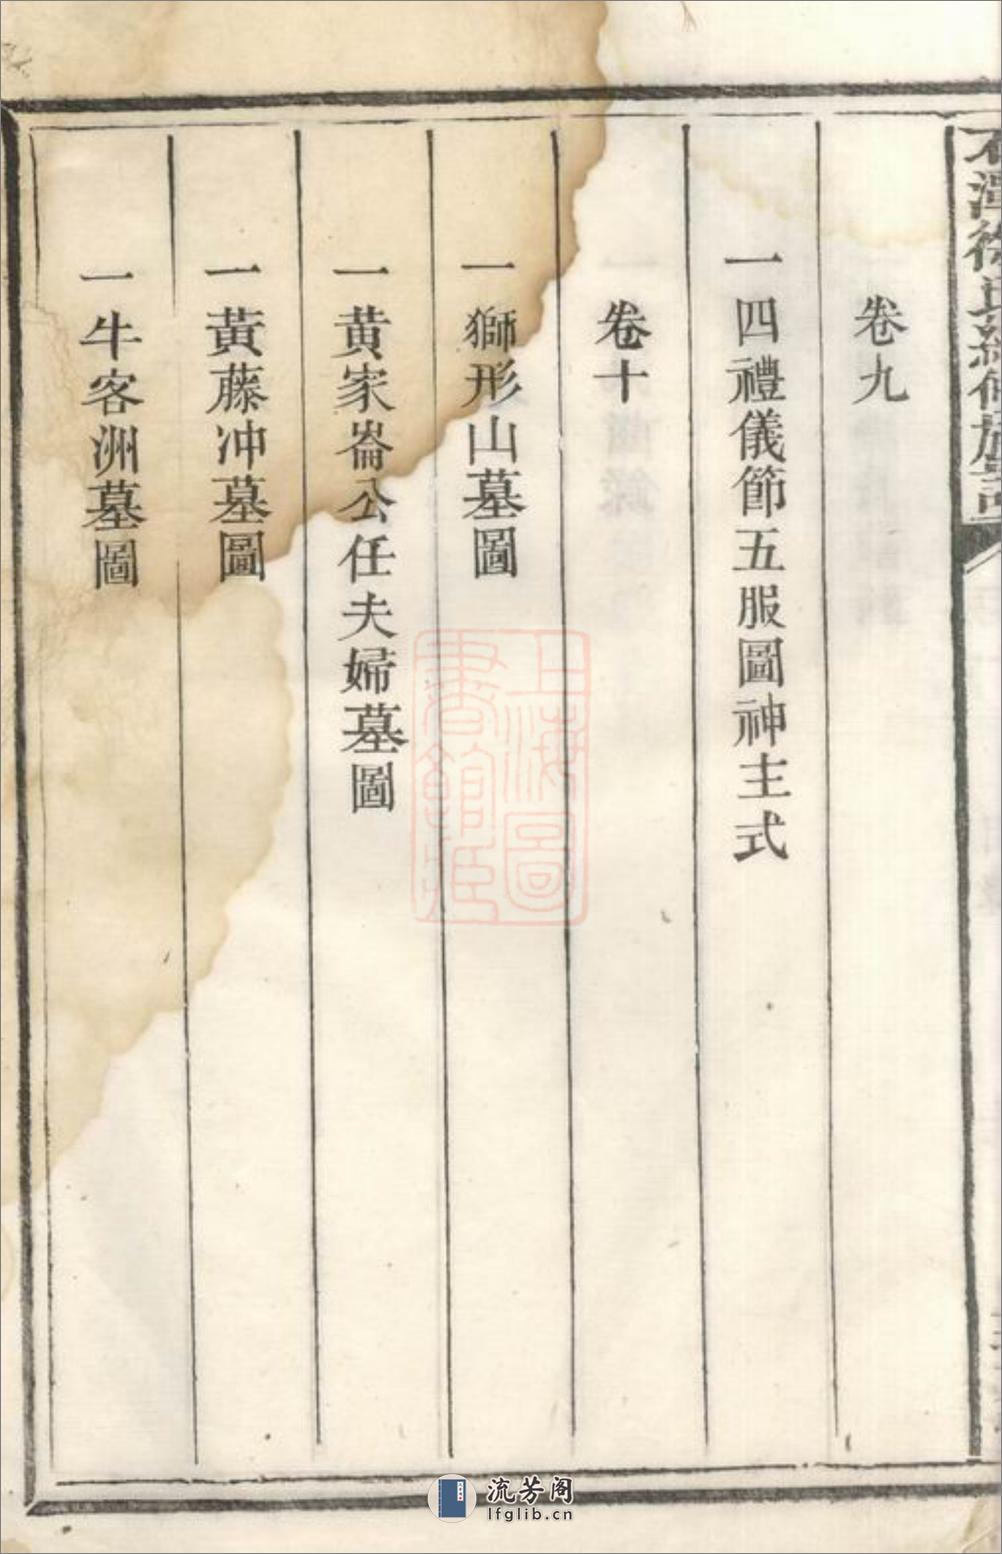 石潭徐氏續修族譜
卷九
一四禮儀節五服圖神主式
卷十
一獅形山墓圖
一黄家崙公任夫婦墓圖
一黃藤冲墓圖
一牛客洲墓圖
上海圖書館藏
流芳阁
lfglib.cn